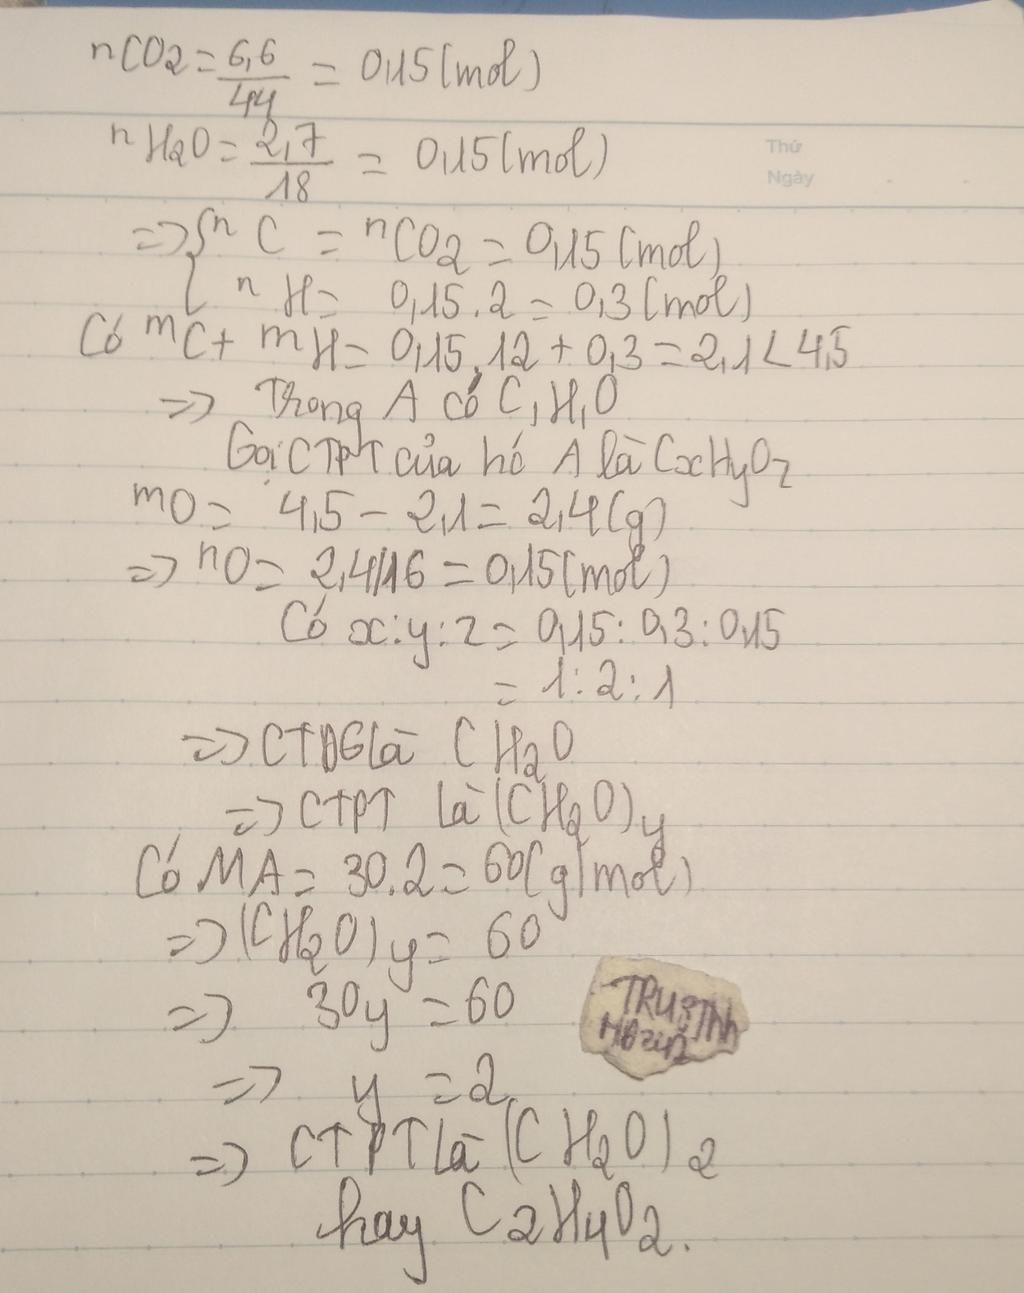 nCO2 = 6,6/44 = 0,15 (mol)
nH2O = 2,7/18 = 0,15 (mol)
Thứ
Ngày
=> { nC = nCO2 = 0,15 (mol)
nH = 0,15.2 = 0,3 (mol)
Có mC + mH = 0,15.12 + 0,3 = 2,1 < 4,5
=> Trong A có C, H, O
Gọi CTPT của hc A là CxHyOz
mO = 4,5 - 2,1 = 2,4 (g)
=> nO = 2,4/16 = 0,15 (mol)
Có x : y : z = 0,15 : 0,3 : 0,15
= 1 : 2 : 1
=> CTĐG là CH2O
=> CTPT là (CH2O)y
Có MA = 30.2 = 60 (g/mol)
=> (CH2O)y = 60
=> 30y = 60
=> y = 2
=> CTPT là (CH2O)2
hay C2H4O2.